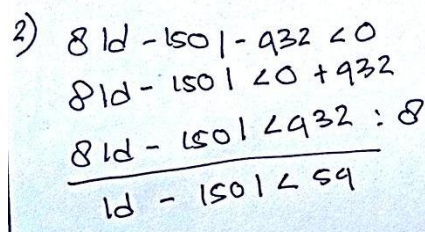 2) 8|d - 150| - 932 < 0
8|d - 150| < 0 + 932
8|d - 150| < 932 : 8
|d - 150| < 59